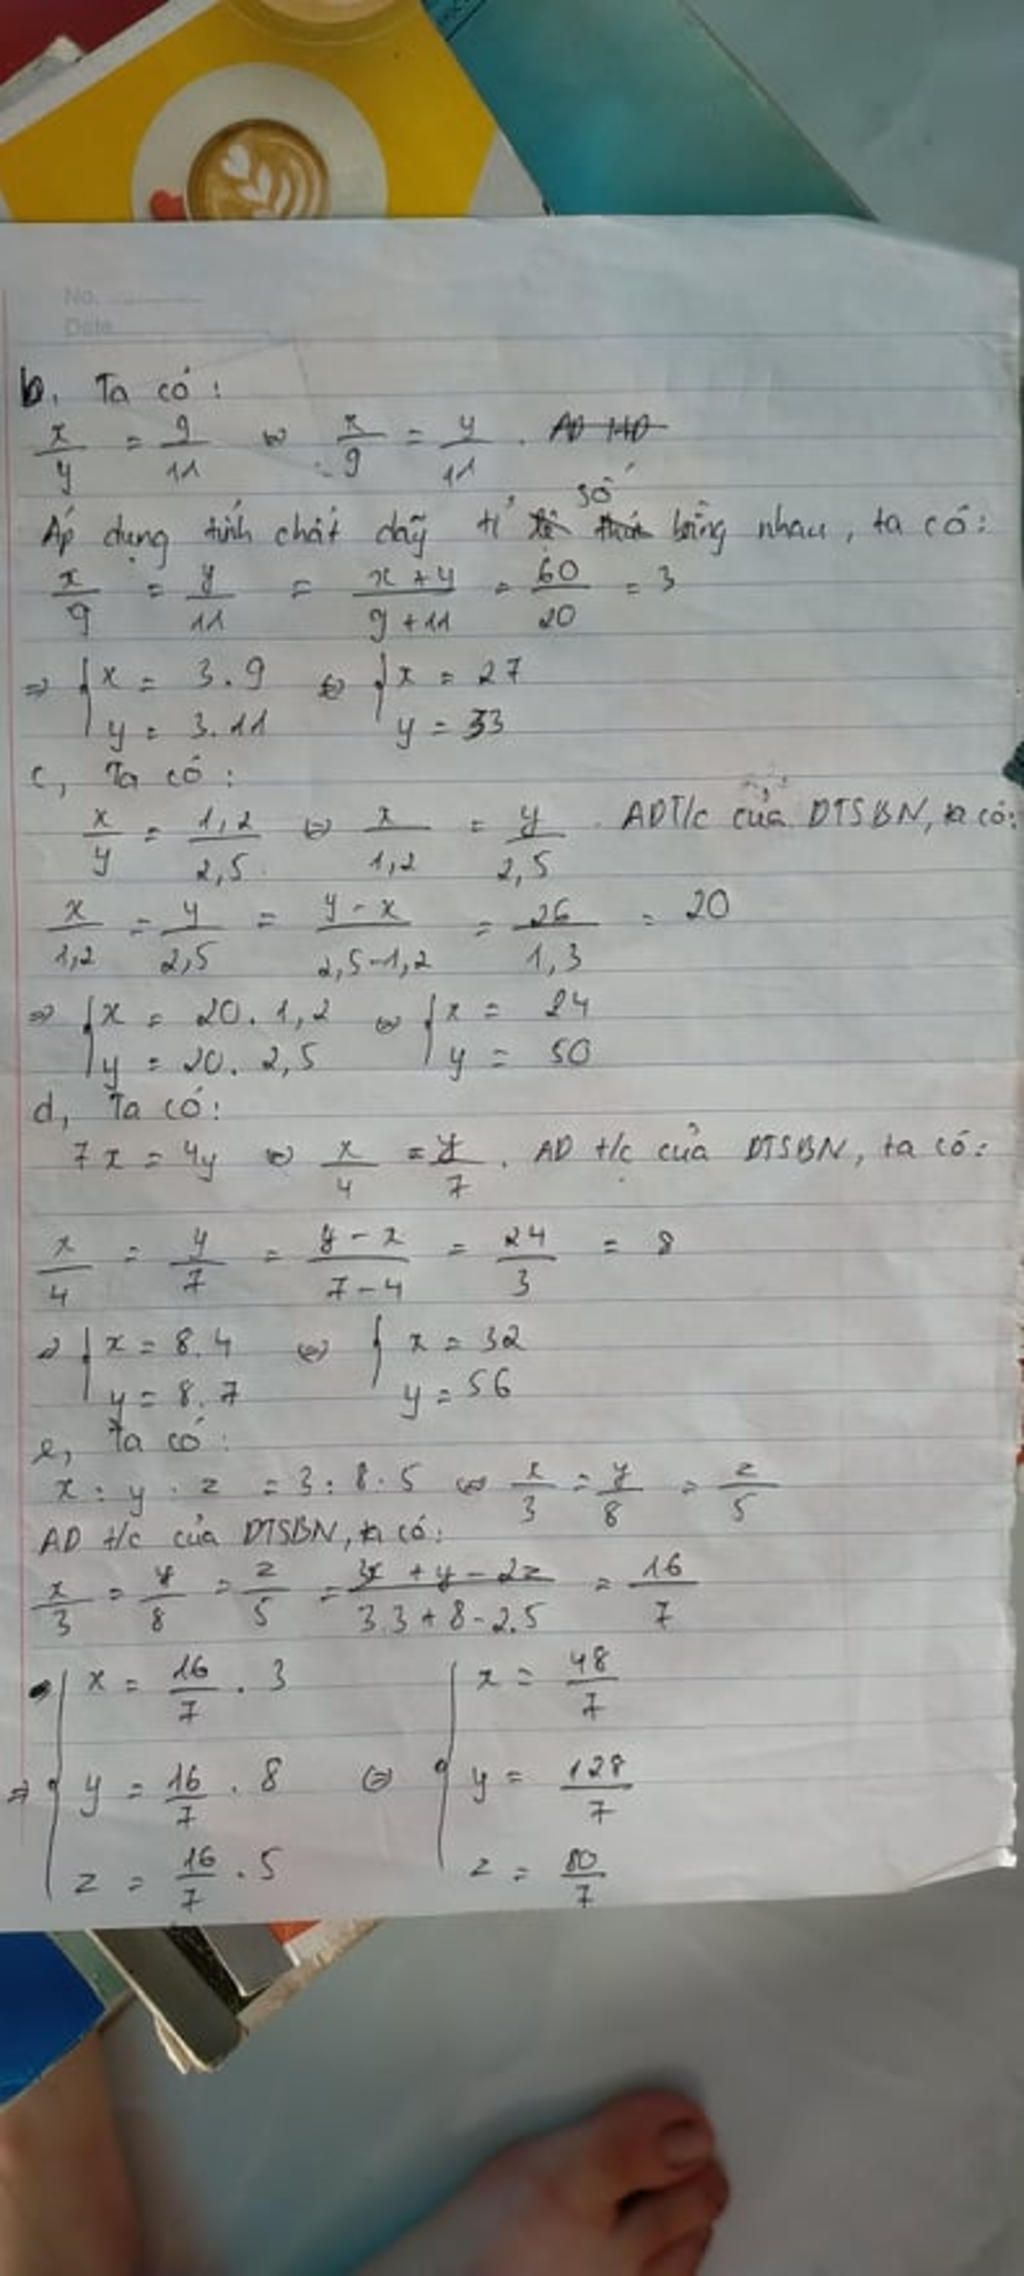 No.
Date
b. Ta có:
x/y = 9/11 ⇔ x/9 = y/11.
Áp dụng tính chất dãy tỉ số bằng nhau, ta có:
x/9 = y/11 = x+y/9+11 = 60/20 = 3
⇒ { x = 3.9 ⇔ { x = 27
y = 3.11 y = 33
c, Ta có:
x/y = 1,2/2,5 ⇔ x/1,2 = y/2,5. ADT/c của DTSBN, ta có:
x/1,2 = y/2,5 = y-x/2,5-1,2 = 26/1,3 = 20
⇒ { x = 20.1,2 ⇔ { x = 24
y = 20.2,5 y = 50
d, Ta có:
7x = 4y ⇔ x/4 = y/7. AD t/c của DTSBN, ta có:
x/4 = y/7 = y-x/7-4 = 24/3 = 8
⇒ { x = 8.4 ⇔ { x = 32
y = 8.7 y = 56
e, Ta có:
x:y:z = 3:8:5 ⇔ x/3 = y/8 = z/5
AD t/c của DTSBN, ta có:
x/3 = y/8 = z/5 = 3x+y-2z/3.3+8-2.5 = 16/7
x = 16/7 . 3 x = 48/7
⇒ { y = 16/7 . 8 ⇔ { y = 128/7
z = 16/7 . 5 z = 80/7